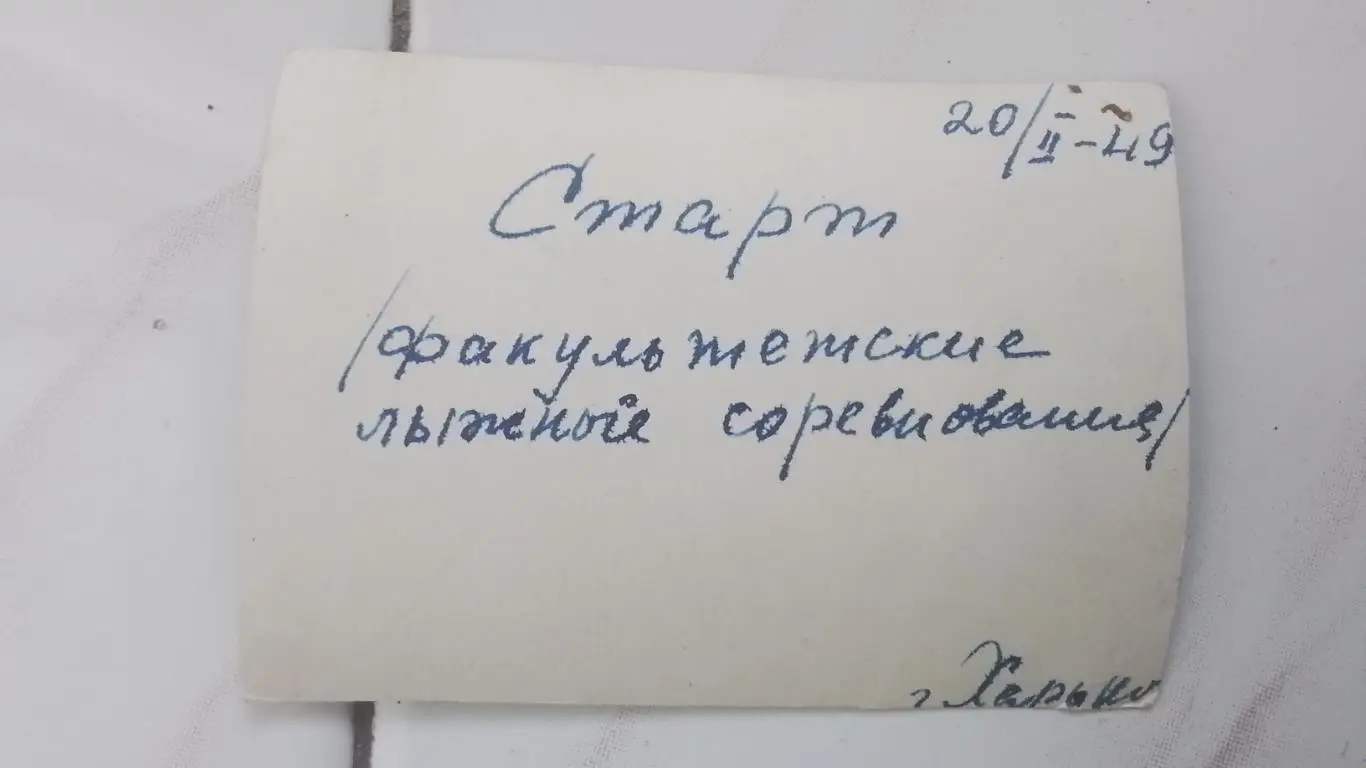 20/II-49
Старт
/факультетские
лыжные соревнования/
г Харьков